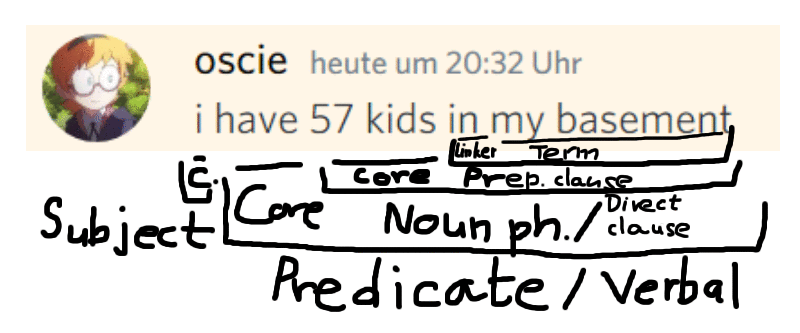 oscie heute um 20:32 Uhr
i have 57 kids in my basement
Linker Term
C. Core Prep. clause
Subject Core Noun ph./Direct clause
Predicate/Verbal